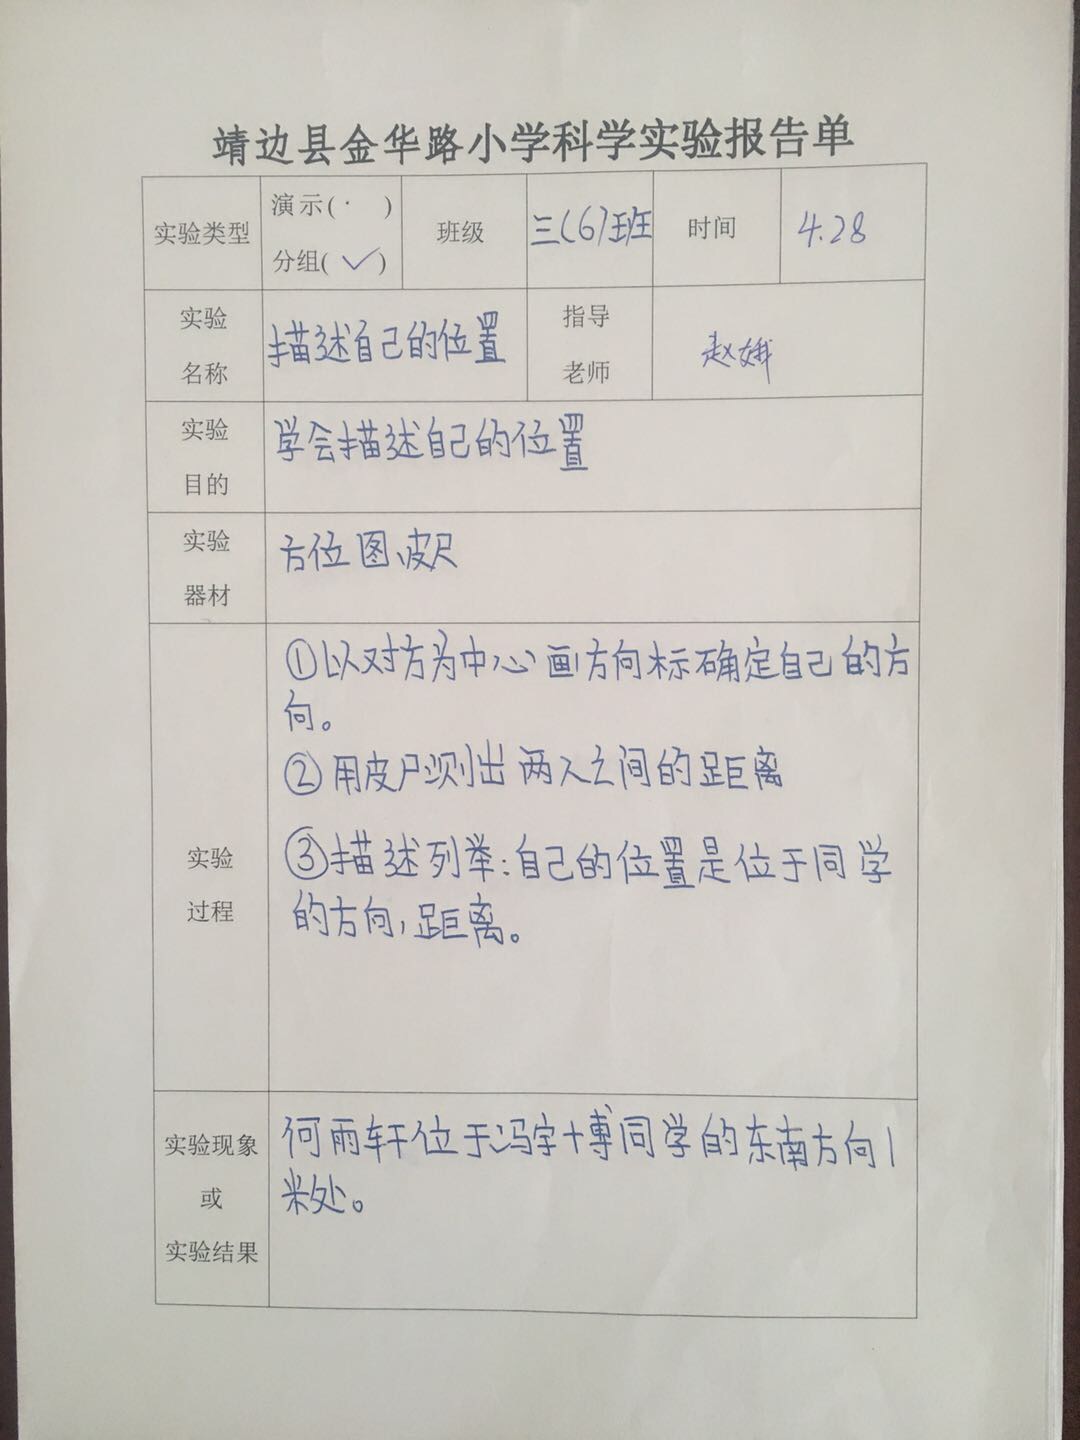 靖边县金华路小学科学实验报告单
实验类型
演示(· )
分组(✓)
班级
三(6)班
时间
4.28
实验
名称
描述自己的位置
指导
老师
赵娥
实验
目的
学会描述自己的位置
实验
器材
方位图、皮尺
实验
过程
①以对方为中心画方向标确定自己的方
向。
②用皮尺测出两人之间的距离
③描述列举:自己的位置是位于同学
的方向,距离。
实验现象
或
实验结果
何雨轩位于冯宇博同学的东南方向1
米处。